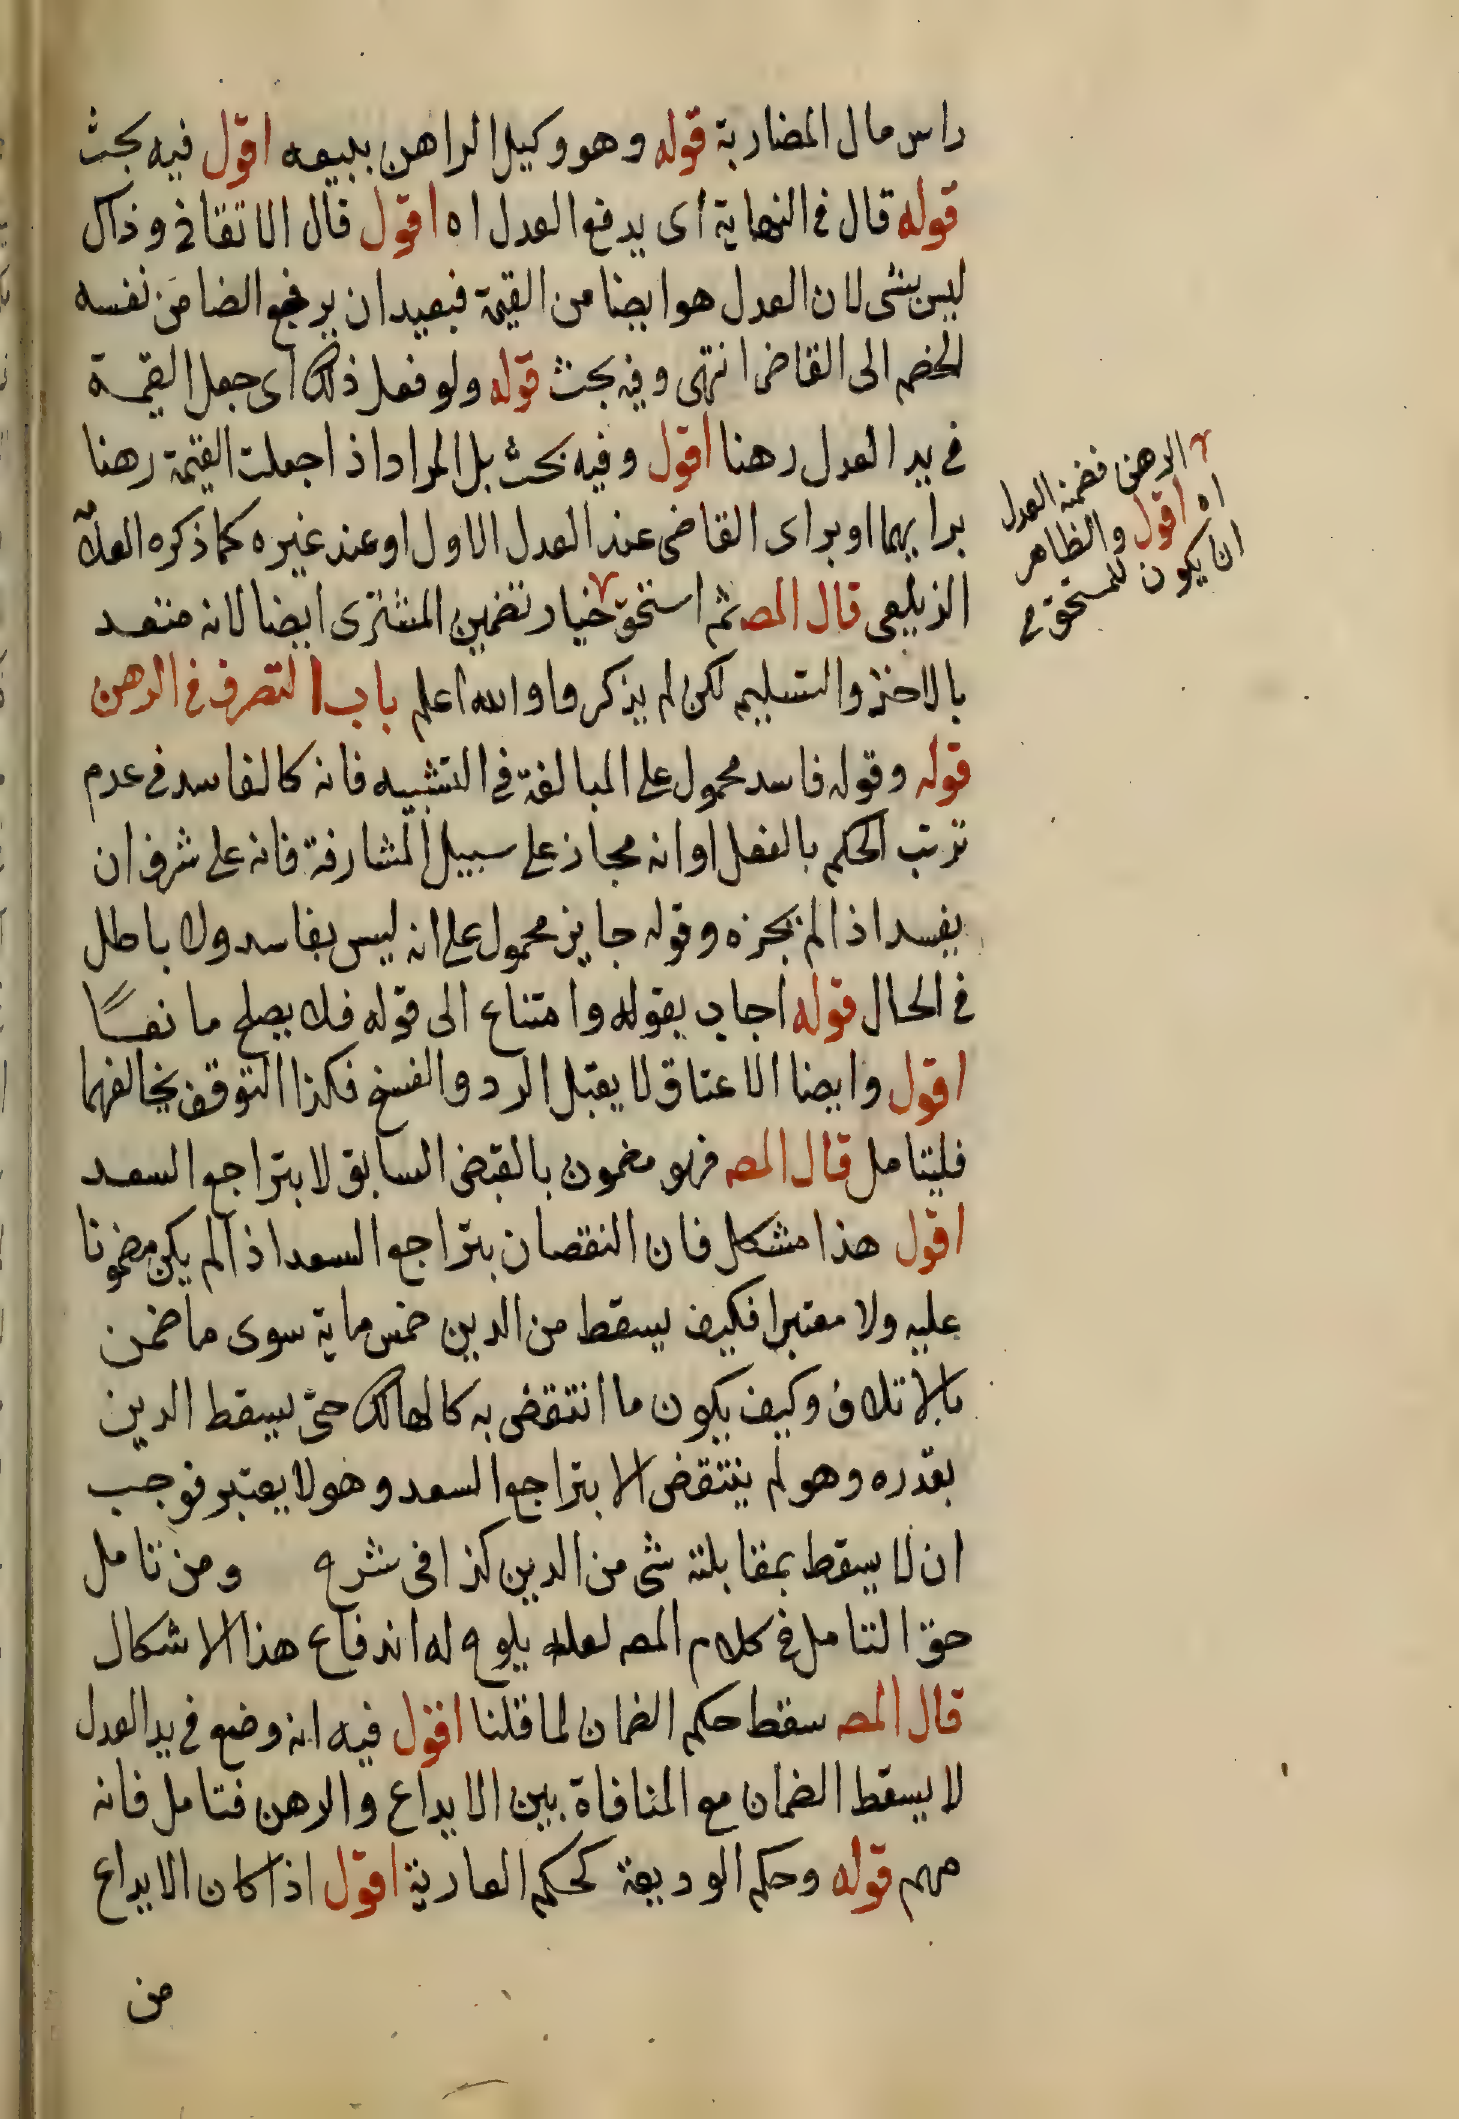 راس مال المضاربة قوله وهو وكيل الراهن ببيعه اقول فيه بحث
قوله قال فى النهاية اى يدفع العدل اه اقول قال الاتقانى وذاك
ليس بشى لان العدل هو ايضا من القيمة فبعيد ان يرفع الضامن نفسه
الخصم الى القاضى انتهى وفيه بحث قوله ولو فعل ذلك اى جعل القيمة
فى يد العدل رهنا اقول وفيه بحث بل المراد اذا جعلت القيمة رهنا
برايهما او براى القاضى عند العدل الاول او عند غيره كما ذكره العلامة
الزيلعى قال المص ثم استحق خيار تضمين المشترى ايضا لانه متعد
بالاخذ والتسليم لكن لم يذكر وا والله اعلم باب التصرف فى الرهن
قوله وقوله فاسد محمول على المبالغة فى التشبيه فانه كالفاسد فى عدم
ترتب الحكم بالفعل او انه مجاز على سبيل المشارفة فانه على شرف ان
يفسد اذا لم يجزه وقوله جايز محمول على انه ليس بفاسد ولا باطل
فى الحال قوله اجاب بقوله وامتناع الى قوله فلا يصلح مانعا
اقول وايضا الاعتاق لا يقبل الرد والفسخ فكذا التوقف يخالفهما
فليتامل قال المص فهو مضمون بالقبض السابق لا بتراجع السعد
اقول هذا مشكل فان النقصان بتراجع السعد اذا لم يكن مضمونا
عليه ولا معتبرا فكيف يسقط من الدين خمس ماية سوى ما ضمن
بالاتلاف وكيف يكون ما انتقض به كالهالك حتى يسقط الدين
بقدره وهو لم ينتقض الا بتراجع السعد وهو لا يعتبر فوجب
ان لا يسقط بمقابلته شى من الدين كذا فى شرح ومن تامل
حق التامل فى كلام المص لعله يلوح له اندفاع هذا الاشكال
قال المص سقط حكم الضمان لما قلنا اقول فيه انه وضع فى يد العدل
لا يسقط الضمان مع المنافاة بين الايداع والرهن فتامل فانه
مهم قوله وحكم الوديعة كحكم العارية اقول اذا كان الايداع
من
الرهن فضمنه العدل
اه اقول والظاهر
ان يكون للمستحق